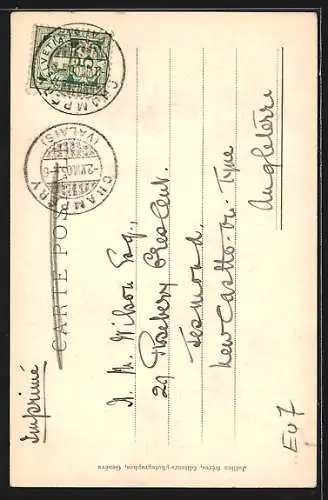 HELVETIA
CHAMPÉRY
CHAMPÉRY
(VALAIS)
CARTE POSTALE
Imprimé
H. M. Wilson Esq.,
29 Rosebery Crescent.
Jesmond,
Newcastle-on-Tyne
Angleterre
E07
Jullien frères, Editeurs-photographes, Genève